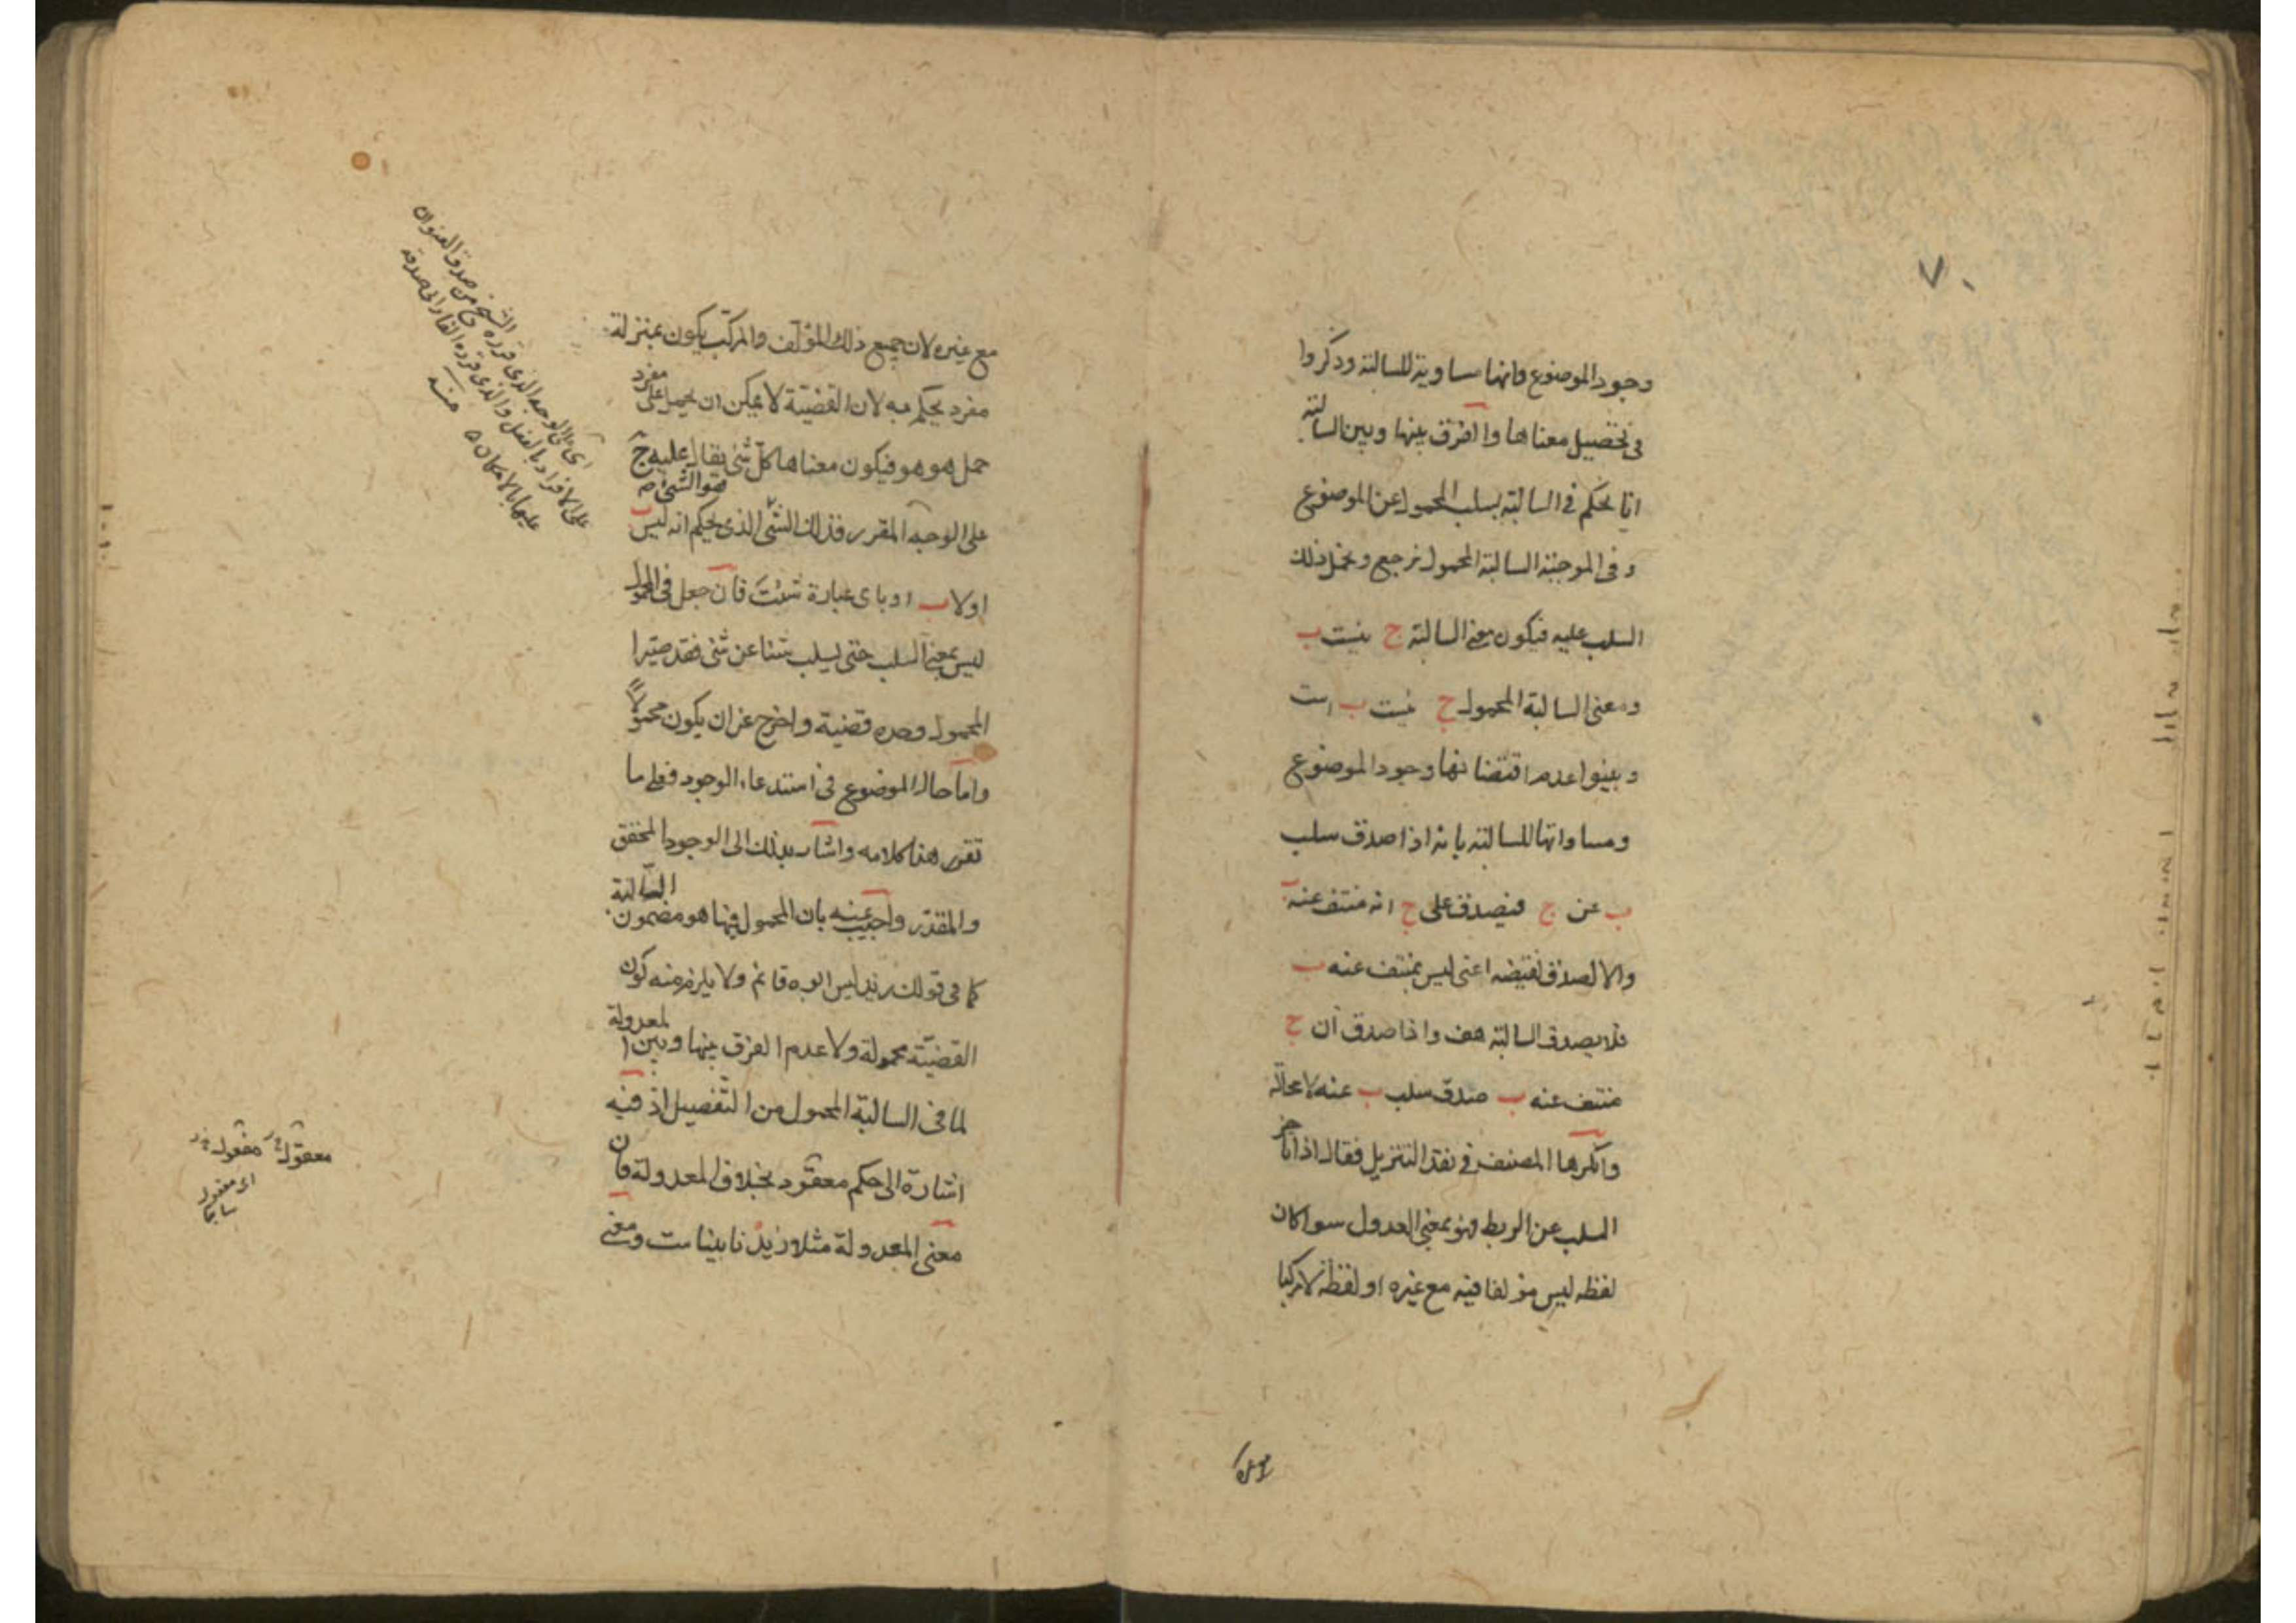 ٧٠
وجود الموضوع وانها مساوية للسالبة وذكروا
فى تحصيل معناها والفرق بينها وبين السالبة
انا نحكم فى السالبة بسلب المحمول عن الموضوع
وفى الموجبة السالبة المحمول نرجع ونحمل ذلك
السلب عليه فيكون معنى السالبة ج نيست ب
ومعنى السالبة المحمول ج نيست ب است
وبينوا عدم اقتضائها وجود الموضوع
ومساواتها للسالبة بانه اذا صدق سلب
ب عن ج فيصدق على ج انه منتف عنه ب
والا لصدق نقيضه اعنى ليس بمنتف عنه ب
فلا يصدق السالبة هف واذا صدق ان ج
منتف عنه ب صدق سلب ب عنه لا محالة
وانكرها المصنف فى نقد التنزيل فقال اذا تاخر
السلب عن الربط فهو بمعنى العدول سوا كان
لفظه ليس مؤلفا فيه مع غيره او لفظة لا مركبا
مع غيره
مع غيره لان جميع ذلك المؤلف والمركب يكون بمنزلة
مفرد يحكم به لان القضية لا يمكن ان يحمل على مفرد
حمل هو هو فيكون معناها كل شئ يقال عليه ج
على الوجه المقرر فذلك الشئ الذى يحكم انه ليس ب
فهو الشئ
اولا ب او باى عبارة شئت فان جعل فى المحمول
ليس بمعنى السلب حتى يسلب شيئا عن شئ فقد صيرا
المحمول وحده قضية واخرج عن ان يكون محمولا
واما حال الموضوع فى استدعاء الوجود فعلى ما
تقرر هذا كلامه واشار بذلك الى الوجود المحقق
والمقدر واجيب عنه بان المحمول فيها هو مضمون السالبة
كما فى قولك زيد ليس ابوه قائم ولا يلزم منه كون
القضية محمولة ولا عدم الفرق بينها وبين المعدولة
لما فى السالبة المحمول من التفصيل اذ فيه
اشارة الى حكم معقود بخلاف المعدولة فان
معنى المعدولة مثلا زيد نابيناست ومعنى
اى على الوجه الذى قرره الشيخ من صدق العنوان
على الافراد بالفعل والذى قرره الفارابى صدقه
عليها بالامكان
منه